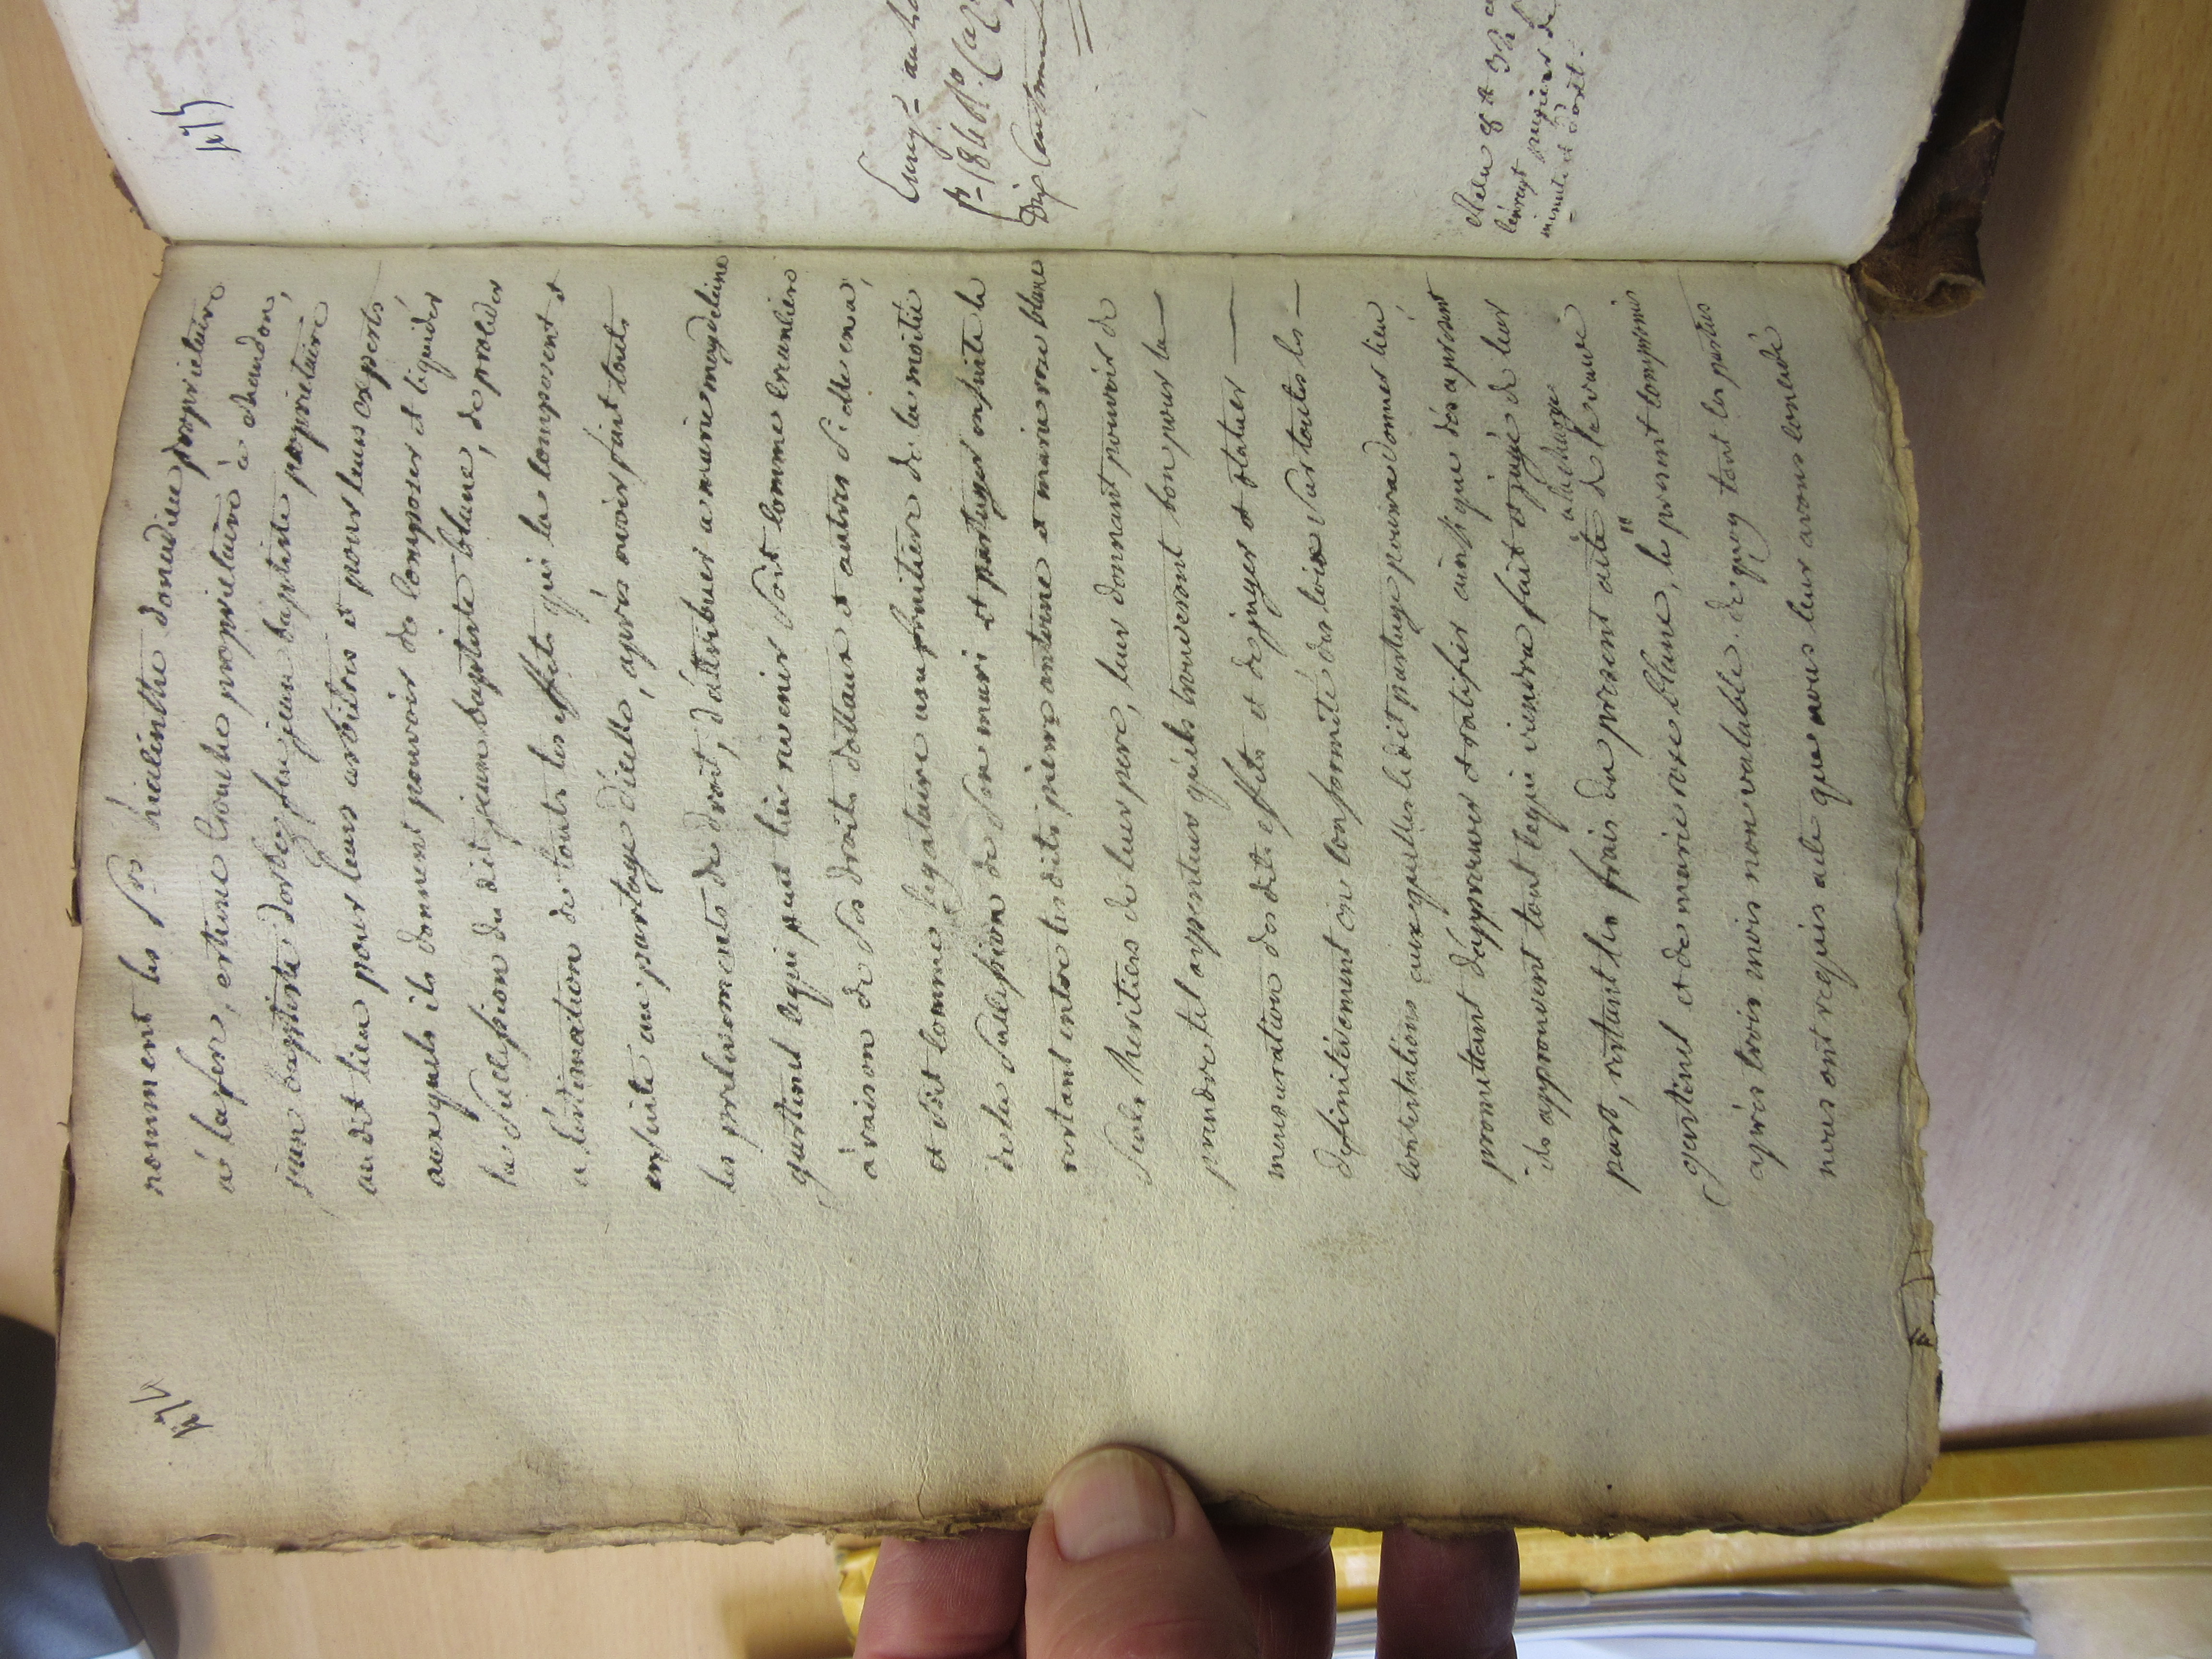 nomment les Srs hiacinthe donadieu proprietaire
à lafon, estienne proprietaire à chaudon,
jean baptiste feu jean baptiste proprietaire
audit lieu pour leurs arbitres et pour leurs experts
auxquels ils donnent pouvoir de composer et liquider
la Succession du dit jean baptiste blanc, de proceder
a lestimation de touts les effets qui la composent et
ensuite au partage d'icelle, après avoir fait touts
les prelevements de droit, d'attribuer a marie magdelaine
gastinel cequi peut luy revenir Soit comme creanciere
à raison de Ses droits dottaux et autres Si elle en a,
et Soit comme legataire usufruitiere de la moitié
de la Succession de Son mari et partager ensuite le
restant entre les dits pierre antoine et marie rose blanc
Seuls heritiers de leur pere, leur donnant pouvoir de
prendre tel appenteur quils trouveront bon pour la
mensuration des dits effets et de juger et statuer
definitivement en conformité des loix Sur toutes les
contestations auxquelles ledit partage pourra donner lieu
promettant d'approuver et ratifier ainsi que dés apresent
ils approuvent tout cequi viendra fait et jugé de leur
part, restant les frais du present acte a la charge de la veuve
gastinel et de marie rose blanc, le present compromis
après trois mois non valable. de quoy tout les parties
nous ont requis acte que nous leur avons concedé
Enreg.
Dix
Relu
minute et